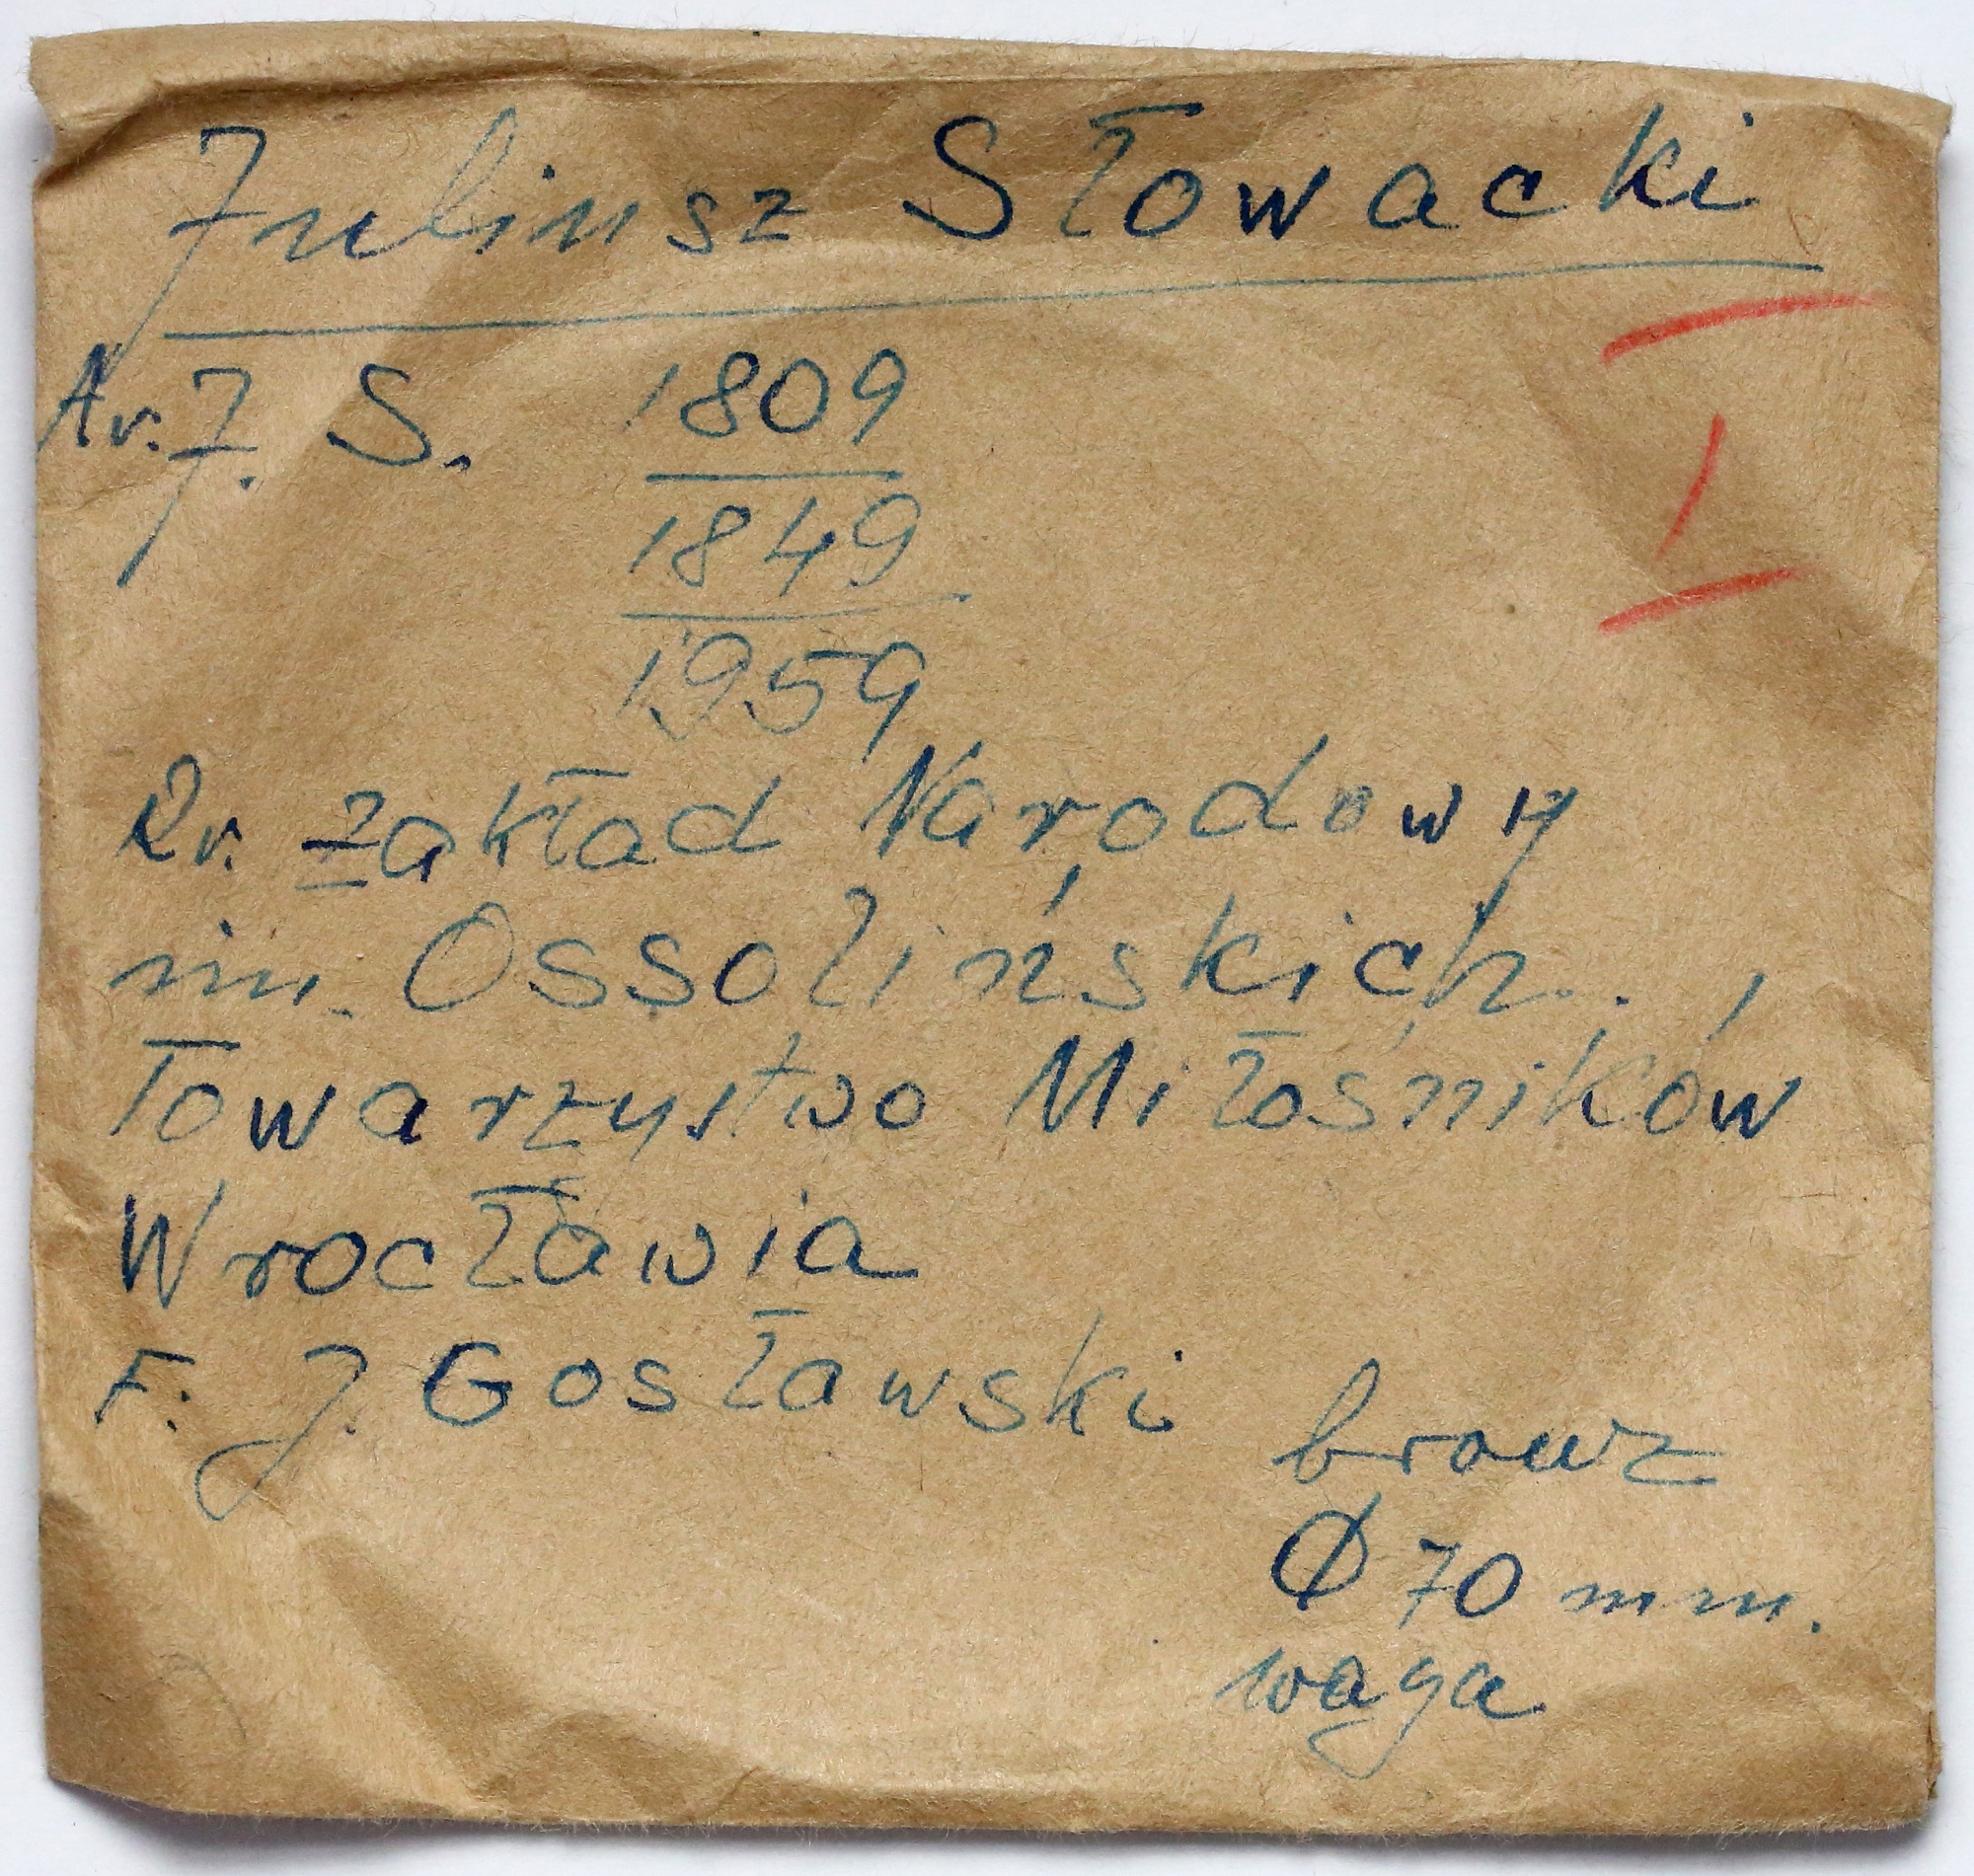 Juliusz Słowacki
Av. J. S. 1809
1849
1959
I
Rv. Zakład Narodowy
im. Ossolińskich.
Towarzystwo Miłośników
Wrocławia
F. J. Gosławski
bronz
Ø 70 mm.
waga